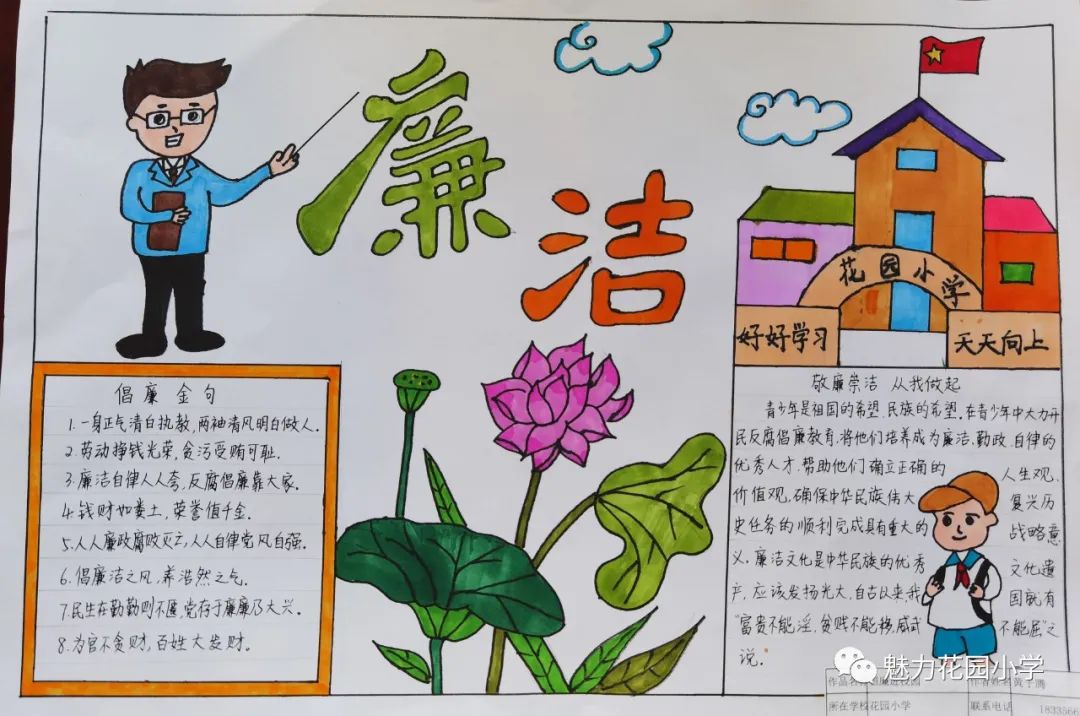 廉
洁
花园小学
好好学习
天天向上
倡廉金句
1.一身正气清白执教,两袖清风明白做人.
2.劳动挣钱光荣,贪污受贿可耻.
3.廉洁自律人人夸,反腐倡廉靠大家.
4.钱财如粪土,荣誉值千金.
5.人人廉政腐败灭亡,人人自律党风自强.
6.倡廉洁之风,养浩然之气.
7.民生在勤勤则不匮,党存于廉廉乃大兴.
8.为官不贪财,百姓大发财.
敬廉崇洁 从我做起
青少年是祖国的希望,民族的希望.在青少年中大力开
民反腐倡廉教育,将他们培养成为廉洁,勤政,自律的
优秀人才,帮助他们确立正确的人生观,
价值观,确保中华民族伟大复兴历
史任务的顺利完成具有重大的战略意
义.廉洁文化是中华民族的优秀文化遗
产,应该发扬光大,自古以来,我国就有
"富贵不能淫,贫贱不能移,威武不能屈"之
说.
魅力花园小学
作品名
作者姓名
所在学校 花园小学
联系电话 1833566